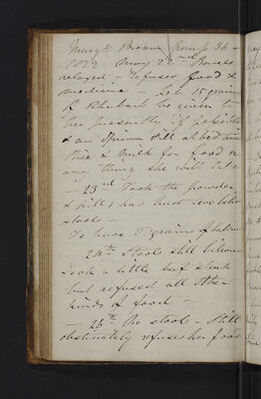 Margt Brown
1872 May 22nd Bowels
relaxed - refuses food &
medicine - Let 15 grains
of Rhubarb be given to
her presently if possible
& an Opium Pill at bed time
Rice & Milk for food or
any thing she will take
- 23rd Took the powder
& pill, has had two bilious
stools -
To have 5 grains of
24th Stools still bilious
took a little beef
but refused all other
kinds of food -
- 26th No stools - Still
obstinately refuses her food